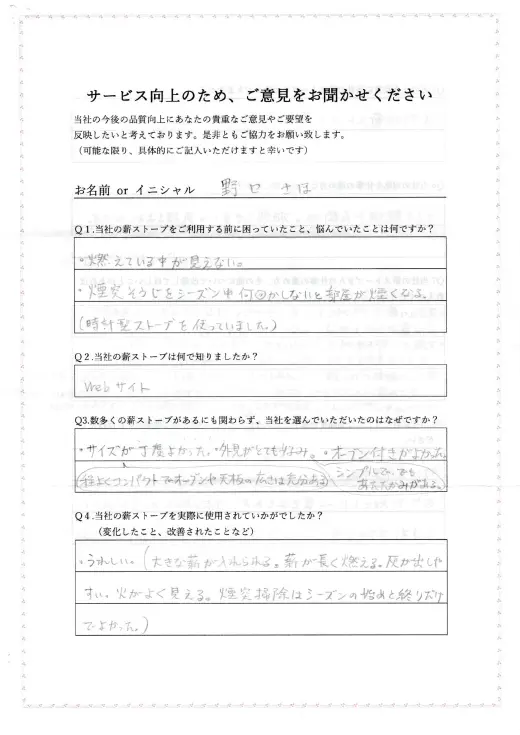 サービス向上のため、ご意見をお聞かせください
当社の今後の品質向上にあなたの貴重なご意見やご要望を
反映したいと考えております。是非ともご協力をお願い致します。
（可能な限り、具体的にご記入いただけますと幸いです）
お名前 or イニシャル 野口 さほ
Q1.当社の薪ストーブをご利用する前に困っていたこと、悩んでいたことは何ですか？
・燃えている中が見えない。
・煙突そうじをシーズン中何回かしないと部屋が煙くなる。
（時計型ストーブを使っていました。）
Q2.当社の薪ストーブは何で知りましたか？
Webサイト
Q3.数多くの薪ストーブがあるにも関わらず、当社を選んでいただいたのはなぜですか？
・サイズが丁度よかった。・外見がとても好み。・オーブン付きがよかった。
（程よくコンパクトでオーブンや天板の広さは充分ある） シンプルで、でも
あたたかみがある。
Q4.当社の薪ストーブを実際に使用されていかがでしたか？
（変化したこと、改善されたことなど）
・うれしい。（大きな薪が入れられる。薪が長く燃える。灰が出しや
すい。火がよく見える。煙突掃除はシーズンの始めと終りだけ
でよかった。）